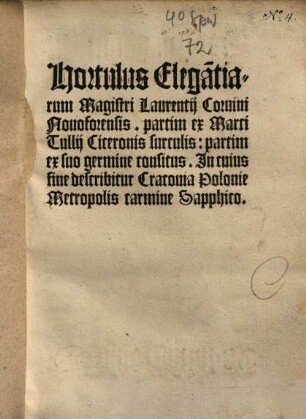 40 Spw
72
Nº 4.
Hortulus Elegãtia-
rum Magistri Laurentij Coruini
Nouoforensis. partim ex Marci
Tullij Ciceronis surculis: partim
ex suo germine consitus. In cuius
fine describitur Cracouia Polonie
Metropolis carmine Sapphico.